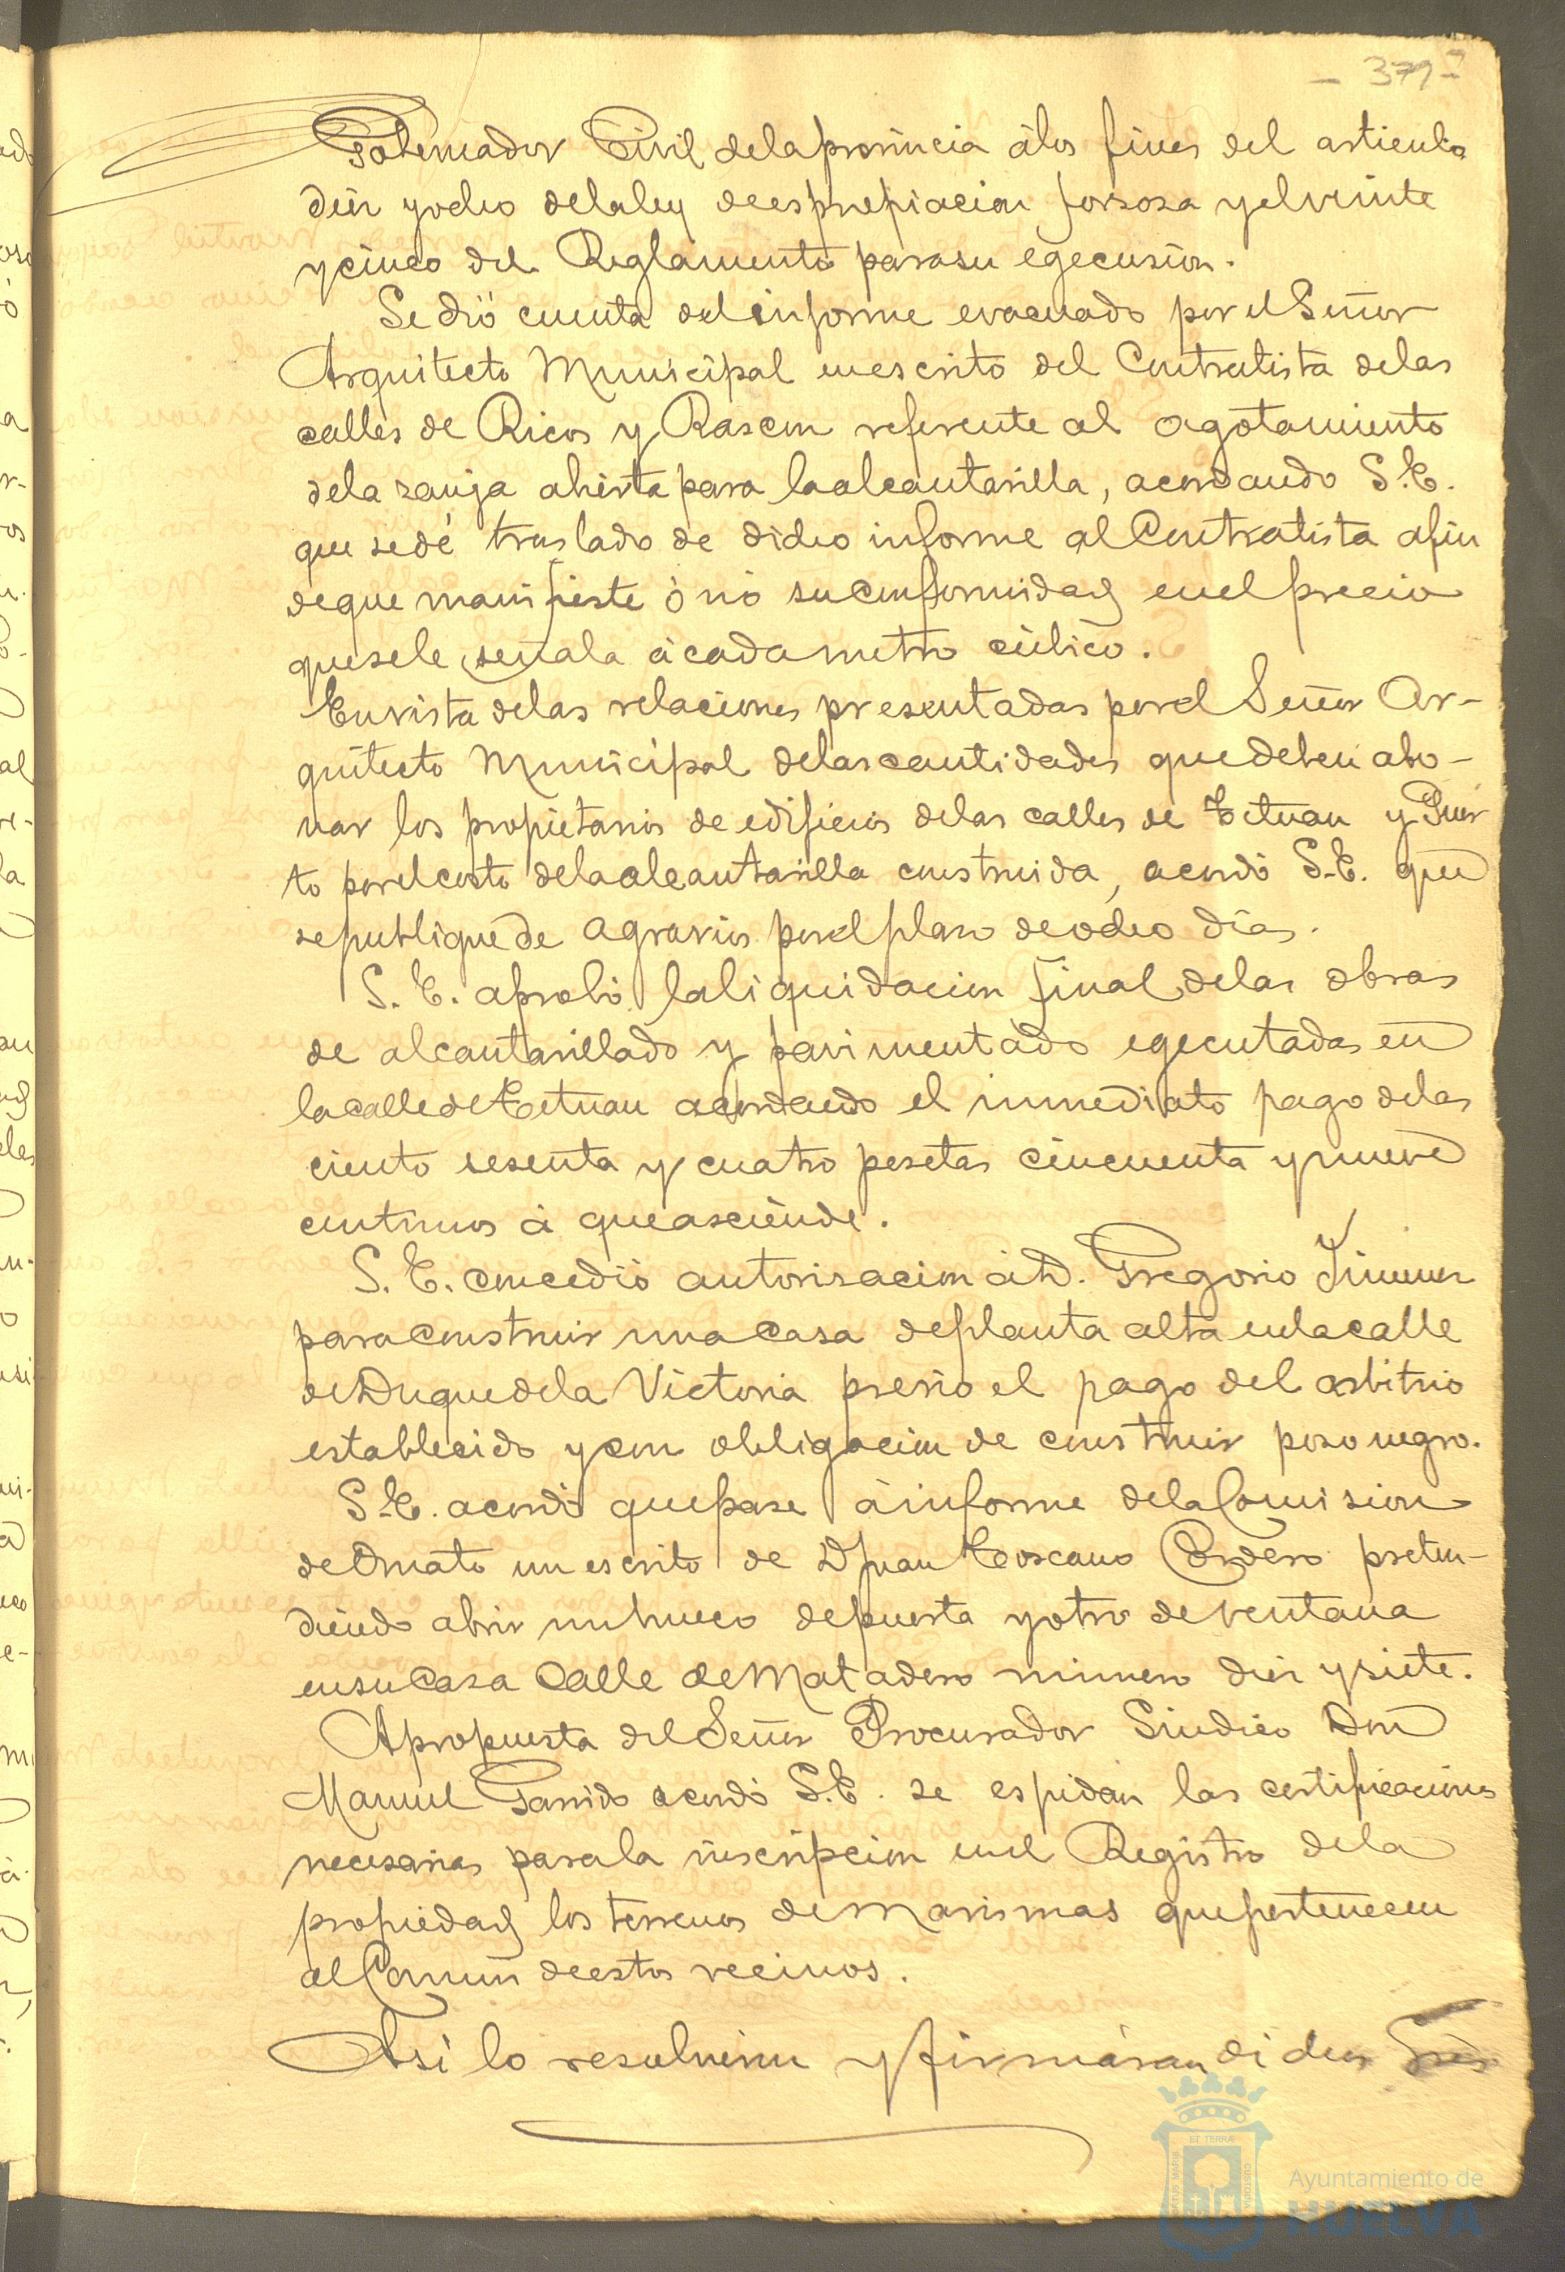 - 379 -
Gobernador Civil de la provincia á los fines del articulo
diez y ocho de la ley de espropiacion forsosa y el veinte
y cinco del Reglamento para su egecusion.
Se dió cuenta del informe evacuado por el Señor
Arquitecto Municipal en escrito del Contratista de las
calles de Ricos y Rascon referente al agotamiento
de la zanja abierta para la alcantarilla, acordando S. E.
que se dé traslado de dicho informe al Contratista a fin
de que manifieste ó nó su conformidad en el precio
que se le señala á cada metro cúbico.
En vista de las relaciones presentadas por el Señor Ar-
quitecto Municipal de las cantidades que deben abo-
nar los propietarios de edificios de las calles de Tetuan y Puer
to por el costo de la alcantarilla construida, acordó S. E. que
se publique de agravios por el plazo de ocho dias.
S. E. aprobó la liquidacion final de las obras
de alcantarillado y pavimentado egecutadas en
la calle de Tetuan acordando el inmediato pago de las
ciento sesenta y cuatro pesetas cincuenta y nueve
centimos á que asciende.
S. E. concedió autorizacion á D. Gregorio Jimenez
para construir una casa de planta alta en la calle
de Duque de la Victoria previo el pago del arbitrio
establecido y con obligacion de construir pozo negro.
S. E. acordó que pase á informe de la Comision
de Ornato un escrito de D Juan Toscano Cordero preten-
diendo abrir un hueco de puerta y otro de ventana
en su casa Calle de Matadero número diez y siete.
A propuesta del Señor Procurador Sindico Don
Manuel Garrido acordó S. E. se espidan las certificaciones
necesarias para la inscripcion en el Registro de la
propiedad los terrenos de Marismas que pertenecen
al Comun de estos vecinos.
Asi lo resolvieron y firmáran dichos Sres
ET TERRÆ
Ayuntamiento de
HUELVA